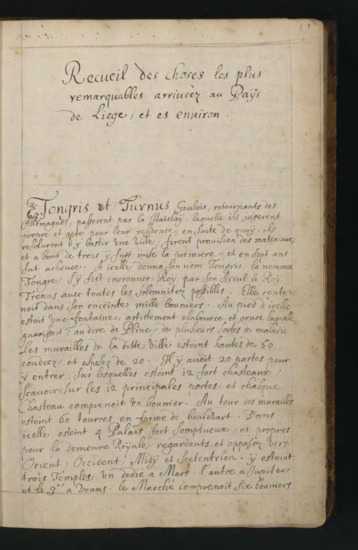 Recueil des choses les plus
remarquables arrivéez au Païs
de Liege, et es environ.
Tongris et Turnus Gaulois, retournants des
Allemagnes, passerent par la Hasbay, laquelle ils jugerent
propre et apte pour leur residence, ensuite de quoy, ils
resolurent d'y bastir une ville, firent provision des materiaux,
et a bout de trois y fust mise la premiere, et en sept ans
fut achevée. A icelle donna son nom Tongris, la nomma
Tongre, s'y fist couronner Roy par son Ayeul le Roy
Trenus avec toutes les solemnitez possibles. Elle conte-
noit dans son enceinte mille bouniers. Au pied d'icelle
estoit une fontaine, artistement elaborée, et ornée laquelle
guarissoit au dire de Pline, de plusieurs sortes de maladie.
Les murailles de la ditte ville estoint hautes de 50
coudeez, et espesses de 20. Il y avoit 20 portes pour
y entrer, sur lesquelles estoint 12 fort chasteaux,
scavoir sur les 12 principales portes, et chasque
Chasteau comprenoit un bounier. Au tour des murailles
estoint 60 tourres en forme de boulevart. Dans
icelle estoint 4 Palais fort somptueux, et propres
pour la demeure Royale, regardants et opposez vers
Orient, Occident, Midy et Septentrion. y estoint
trois Temples, un dedié a Mars l'autre a Jupiter,
et le 3e a Venus. le Marché comprenoit six bouniers